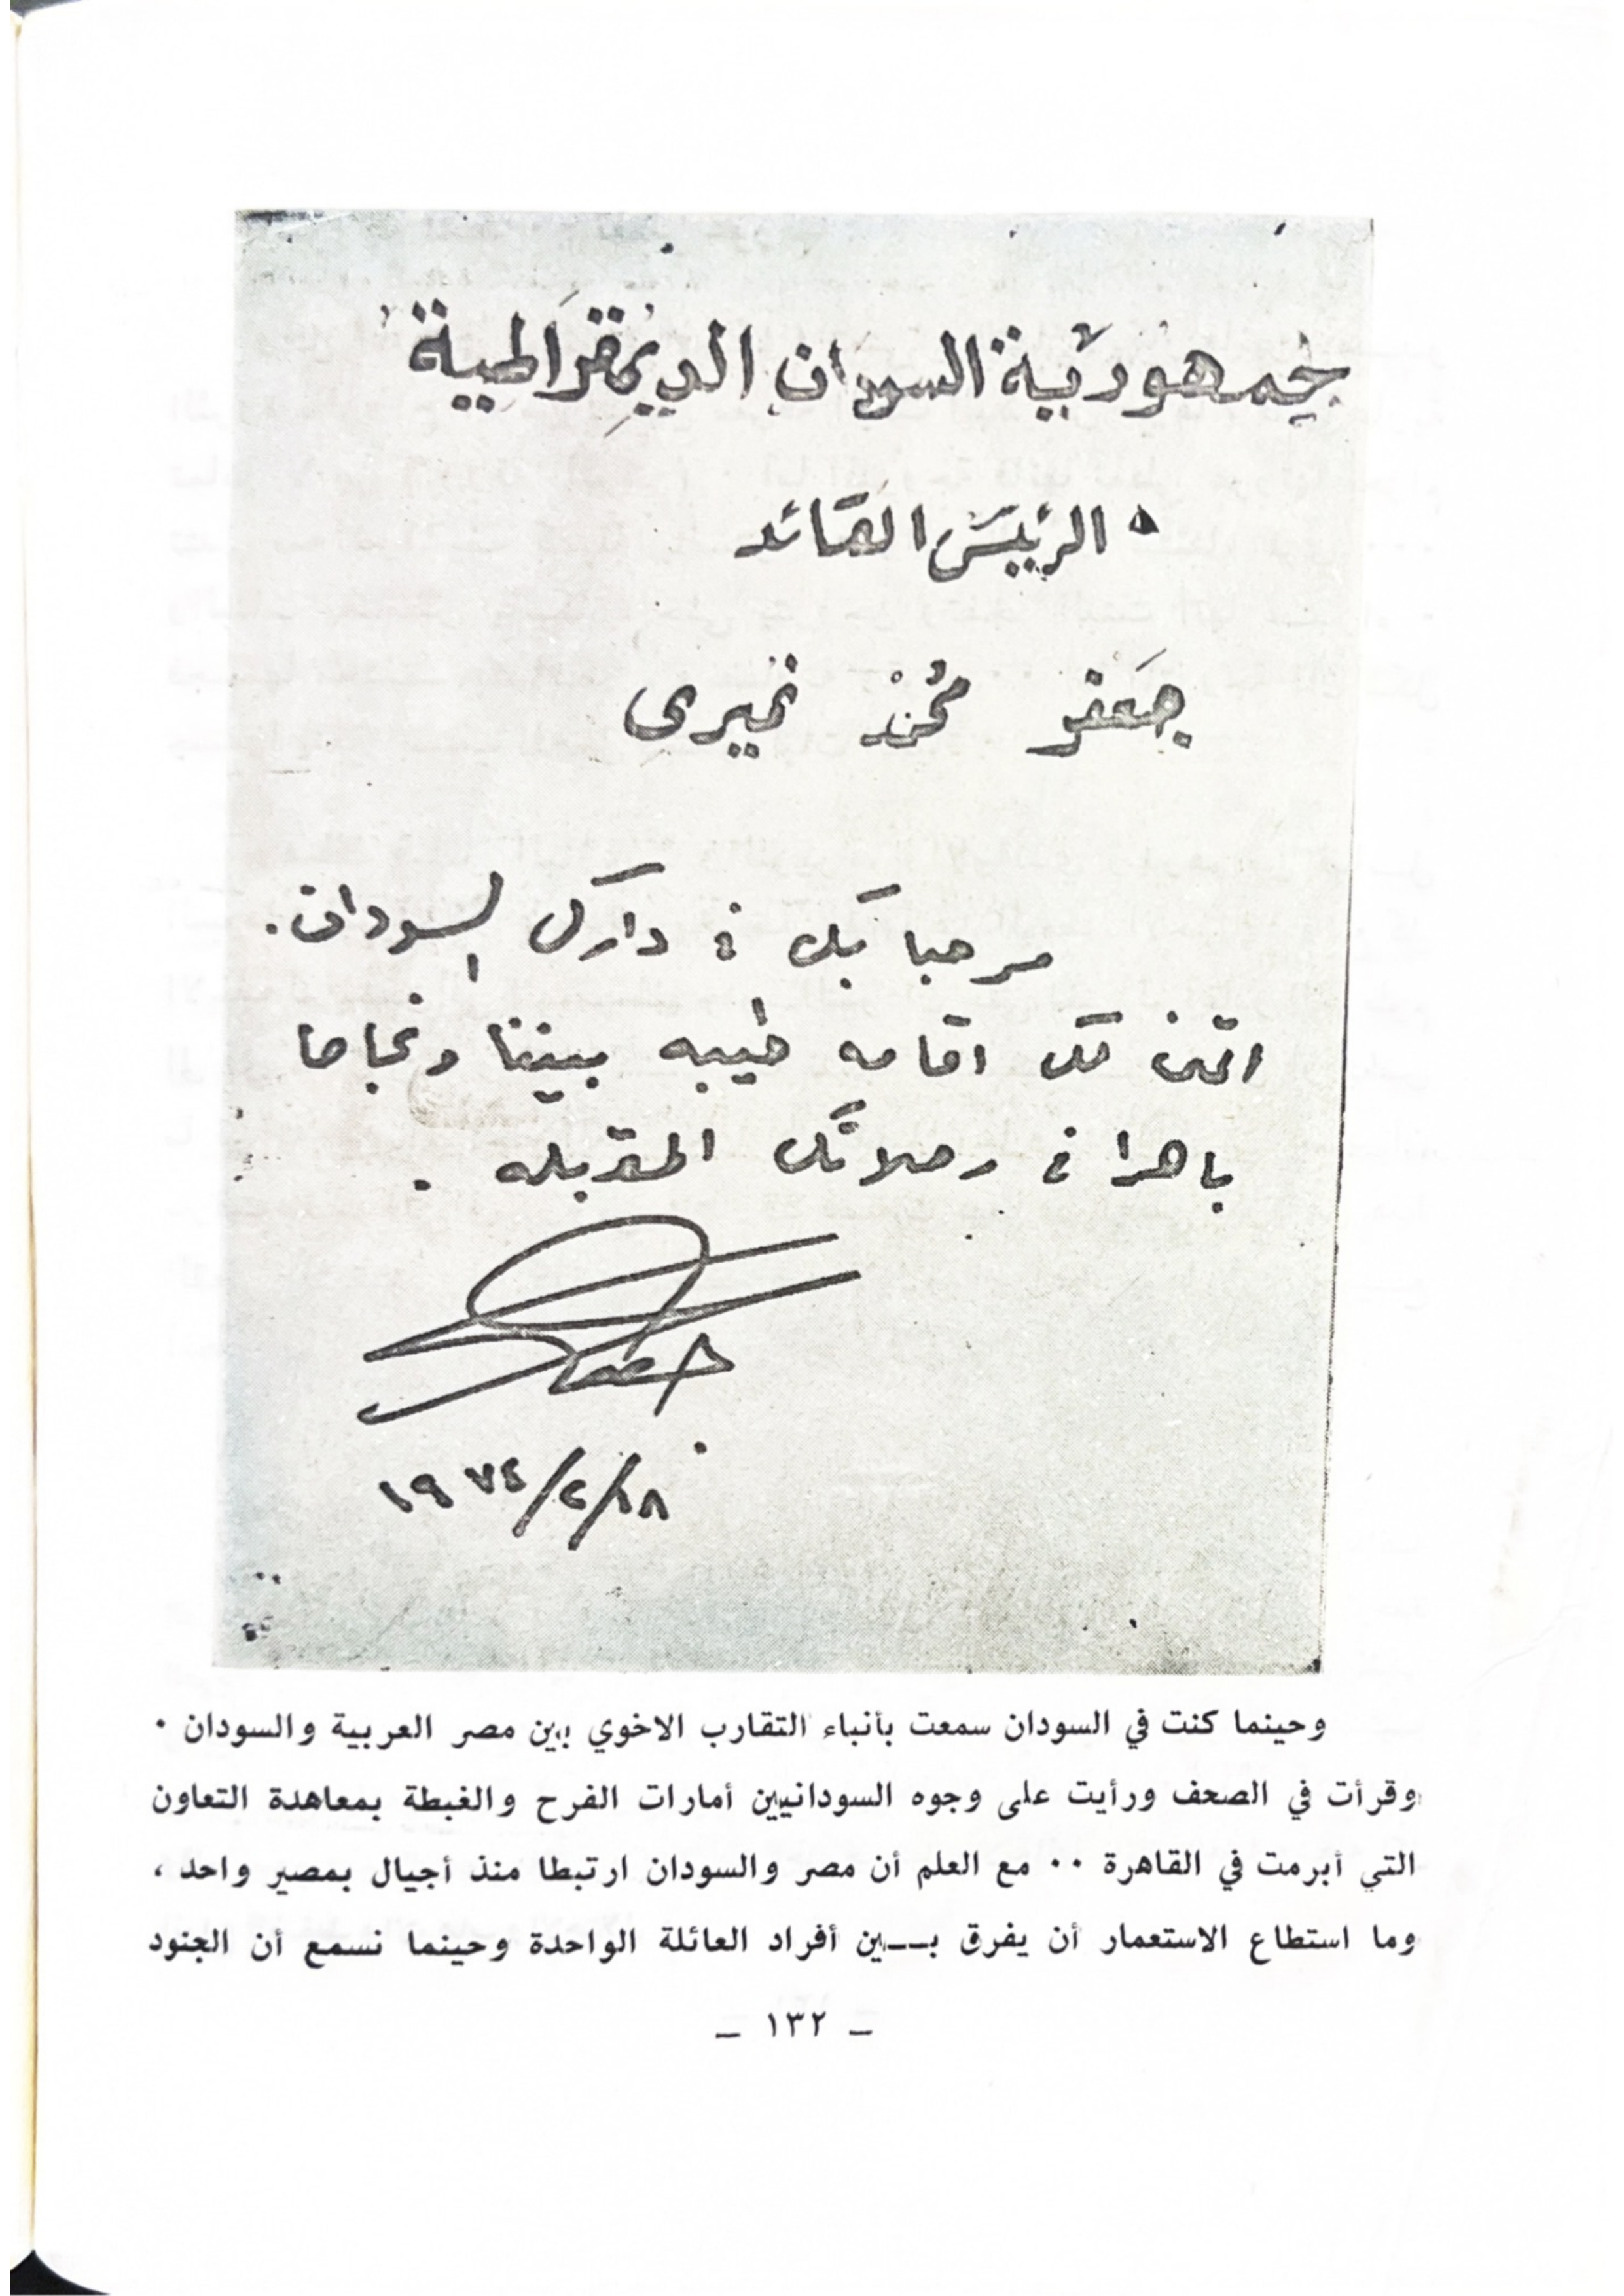 جمهورية السودان الديمقراطية
الرئيس القائد
جعفر محمد نميرى
مرحبا بك فى دارك السودان.
اتمنى لك اقامه طيبه بيننا ونجاحا
باهرا فى رحلاتك المقبله .
١٩٧٤/٢/١٨
وحينما كنت في السودان سمعت بأنباء التقارب الاخوي بين مصر العربية والسودان ٠
وقرأت في الصحف ورأيت على وجوه السودانيين أمارات الفرح والغبطة بمعاهدة التعاون
التي أبرمت في القاهرة ٠٠ مع العلم أن مصر والسودان ارتبطا منذ أجيال بمصير واحد ،
وما استطاع الاستعمار أن يفرق بــين أفراد العائلة الواحدة وحينما نسمع أن الجنود
ـ ١٣٢ ـ